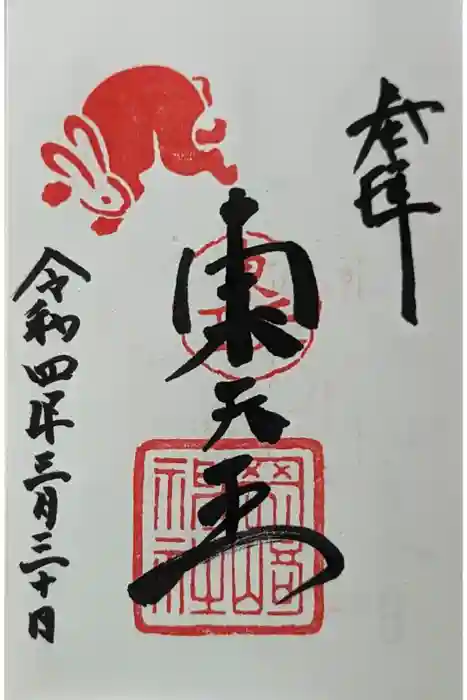 奉拝
東天王
岡崎
神社
令和四年三月三十日